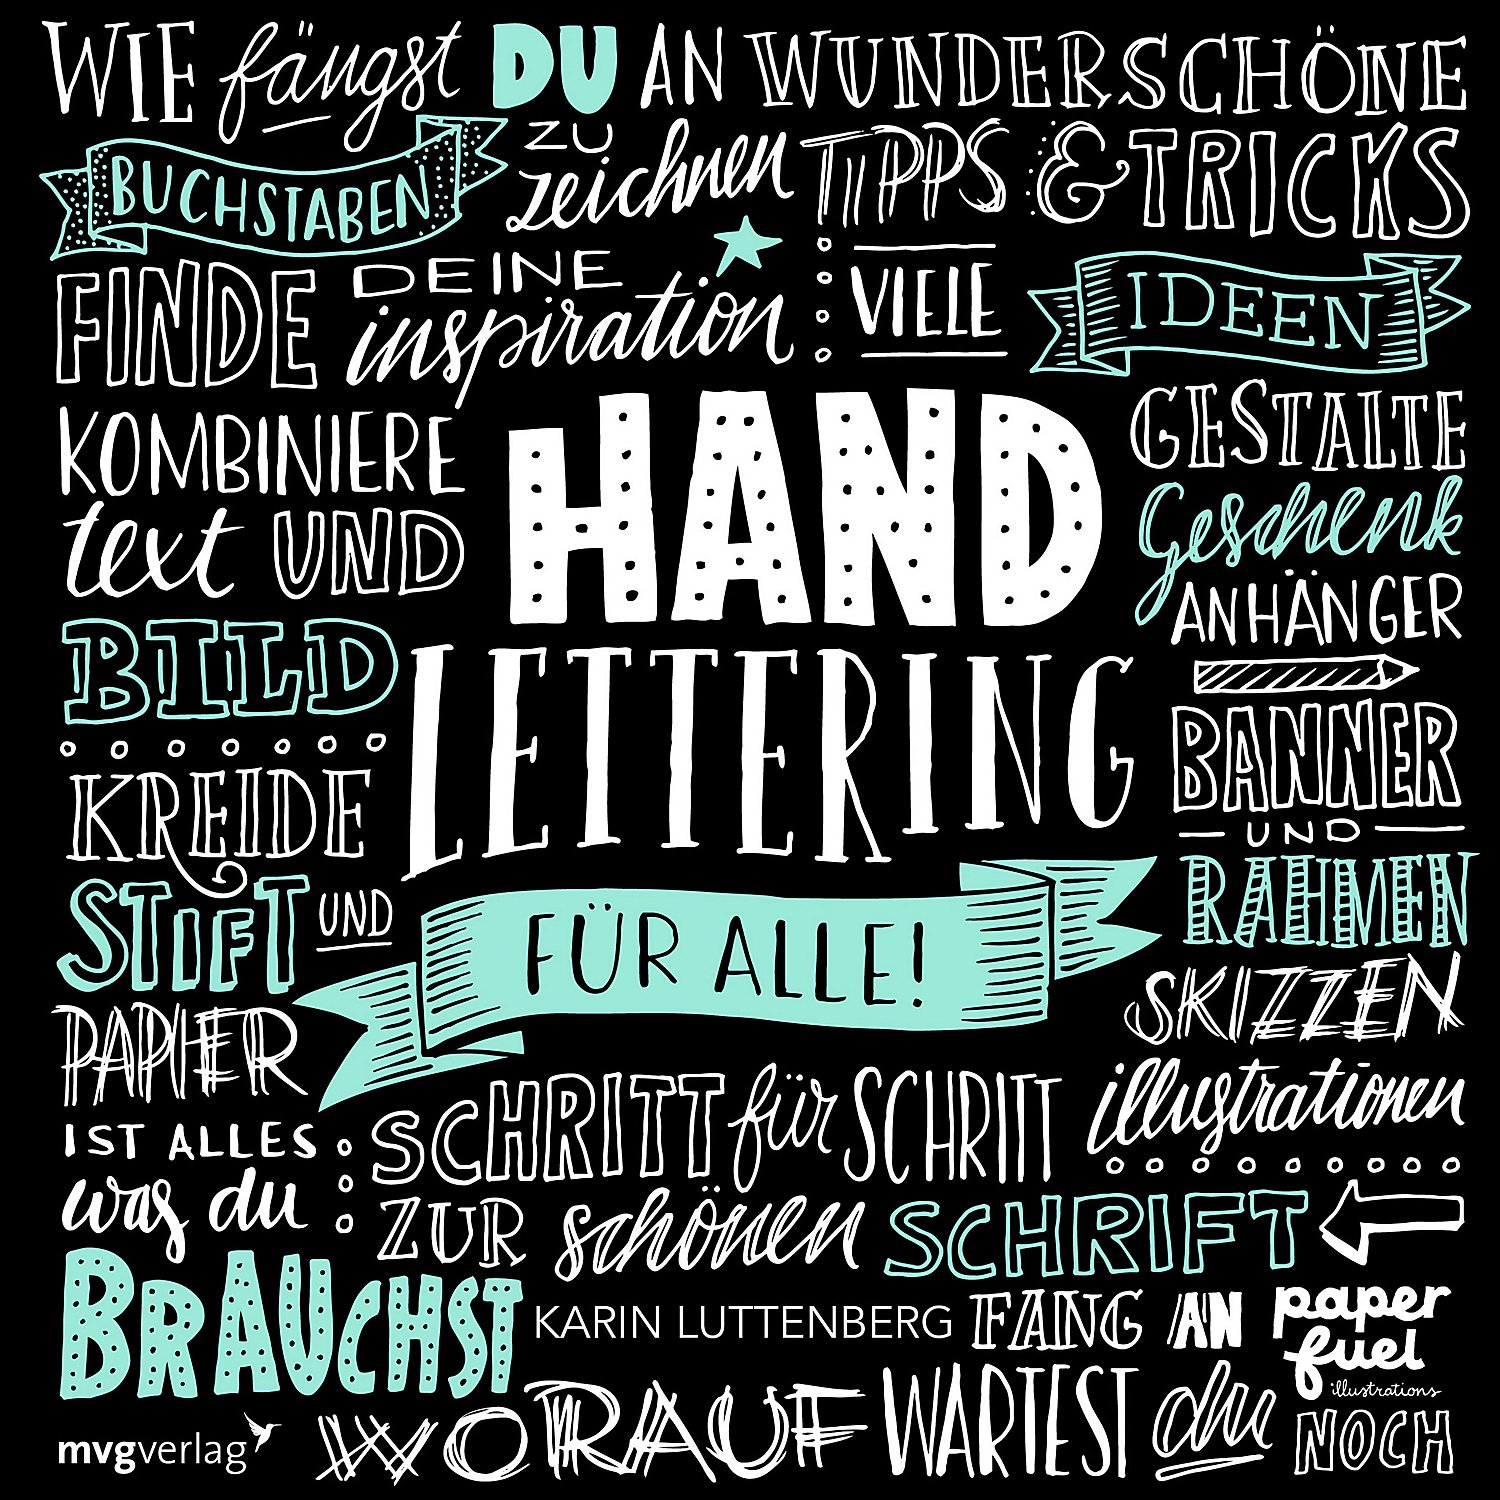 WIE fängst DU AN WUNDERSCHÖNE
BUCHSTABEN ZU zeichnen TIPPS & TRICKS
FINDE DEINE inspiration VIELE IDEEN
KOMBINIERE
text UND
BILD
KREIDE
STIFT UND
PAPIER
IST ALLES
was du
BRAUCHST
HAND
LETTERING
FÜR ALLE!
GESTALTE
Geschenk
ANHÄNGER
BANNER
UND
RAHMEN
SKIZZEN
illustrationen
SCHRITT für SCHRITT
ZUR schönen SCHRIFT
KARIN LUTTENBERG FANG AN
paper
fuel
illustrations
WORAUF WARTEST du NOCH
mvgverlag